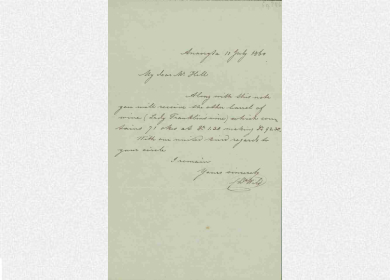 11 July 186
My dear Mr Hill
Along with this note
you will receive the other barrel of
wine (Lady Franklins wine) which con
tains 7 doz at making
With our united kind regards to
your circle
I remain
Yours sincerely